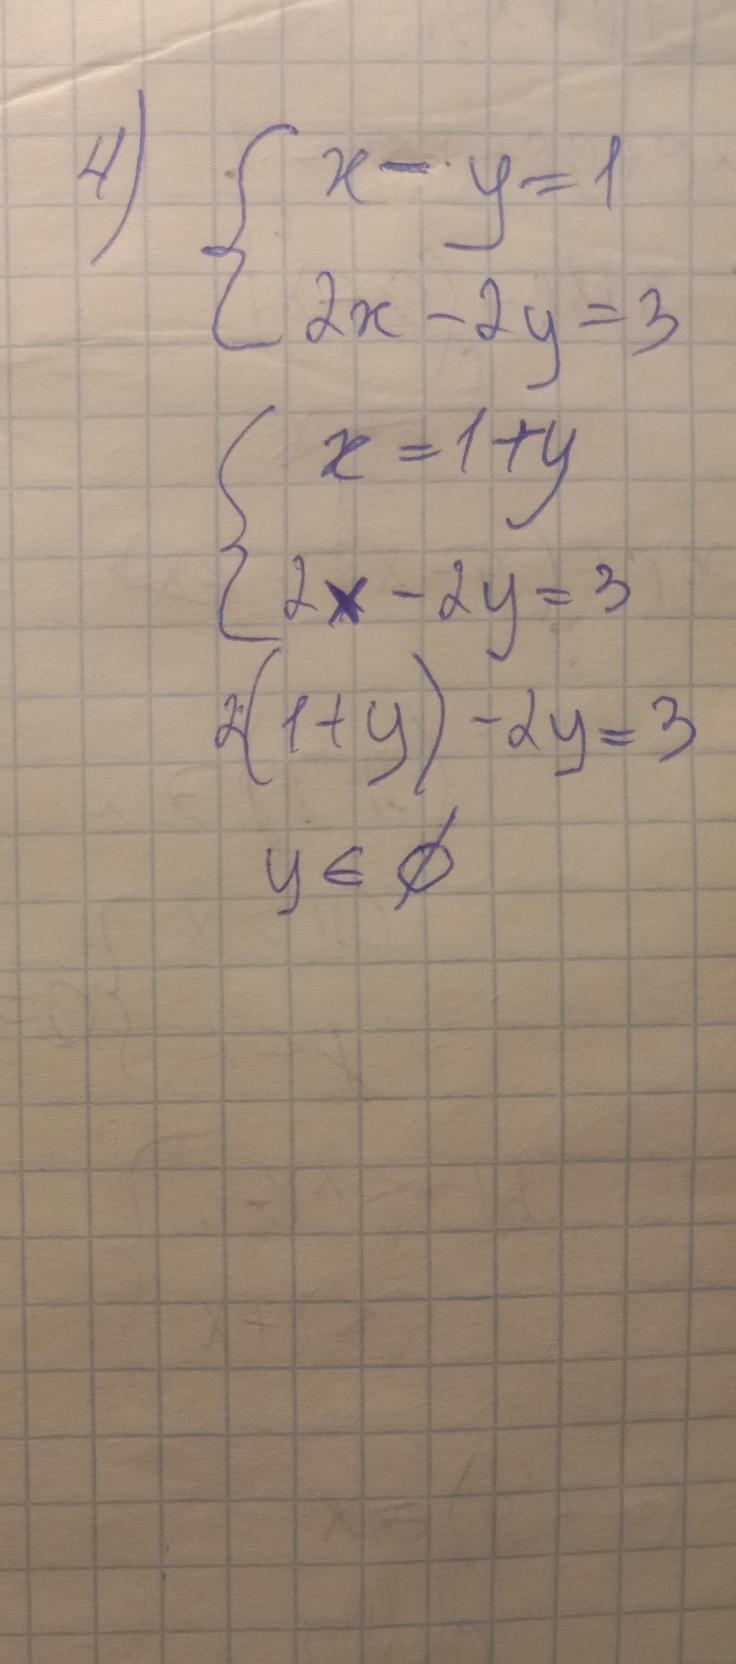 4) { x - y = 1
2x - 2y = 3
{ x = 1 + y
2x - 2y = 3
2(1 + y) - 2y = 3
y ∈ ∅